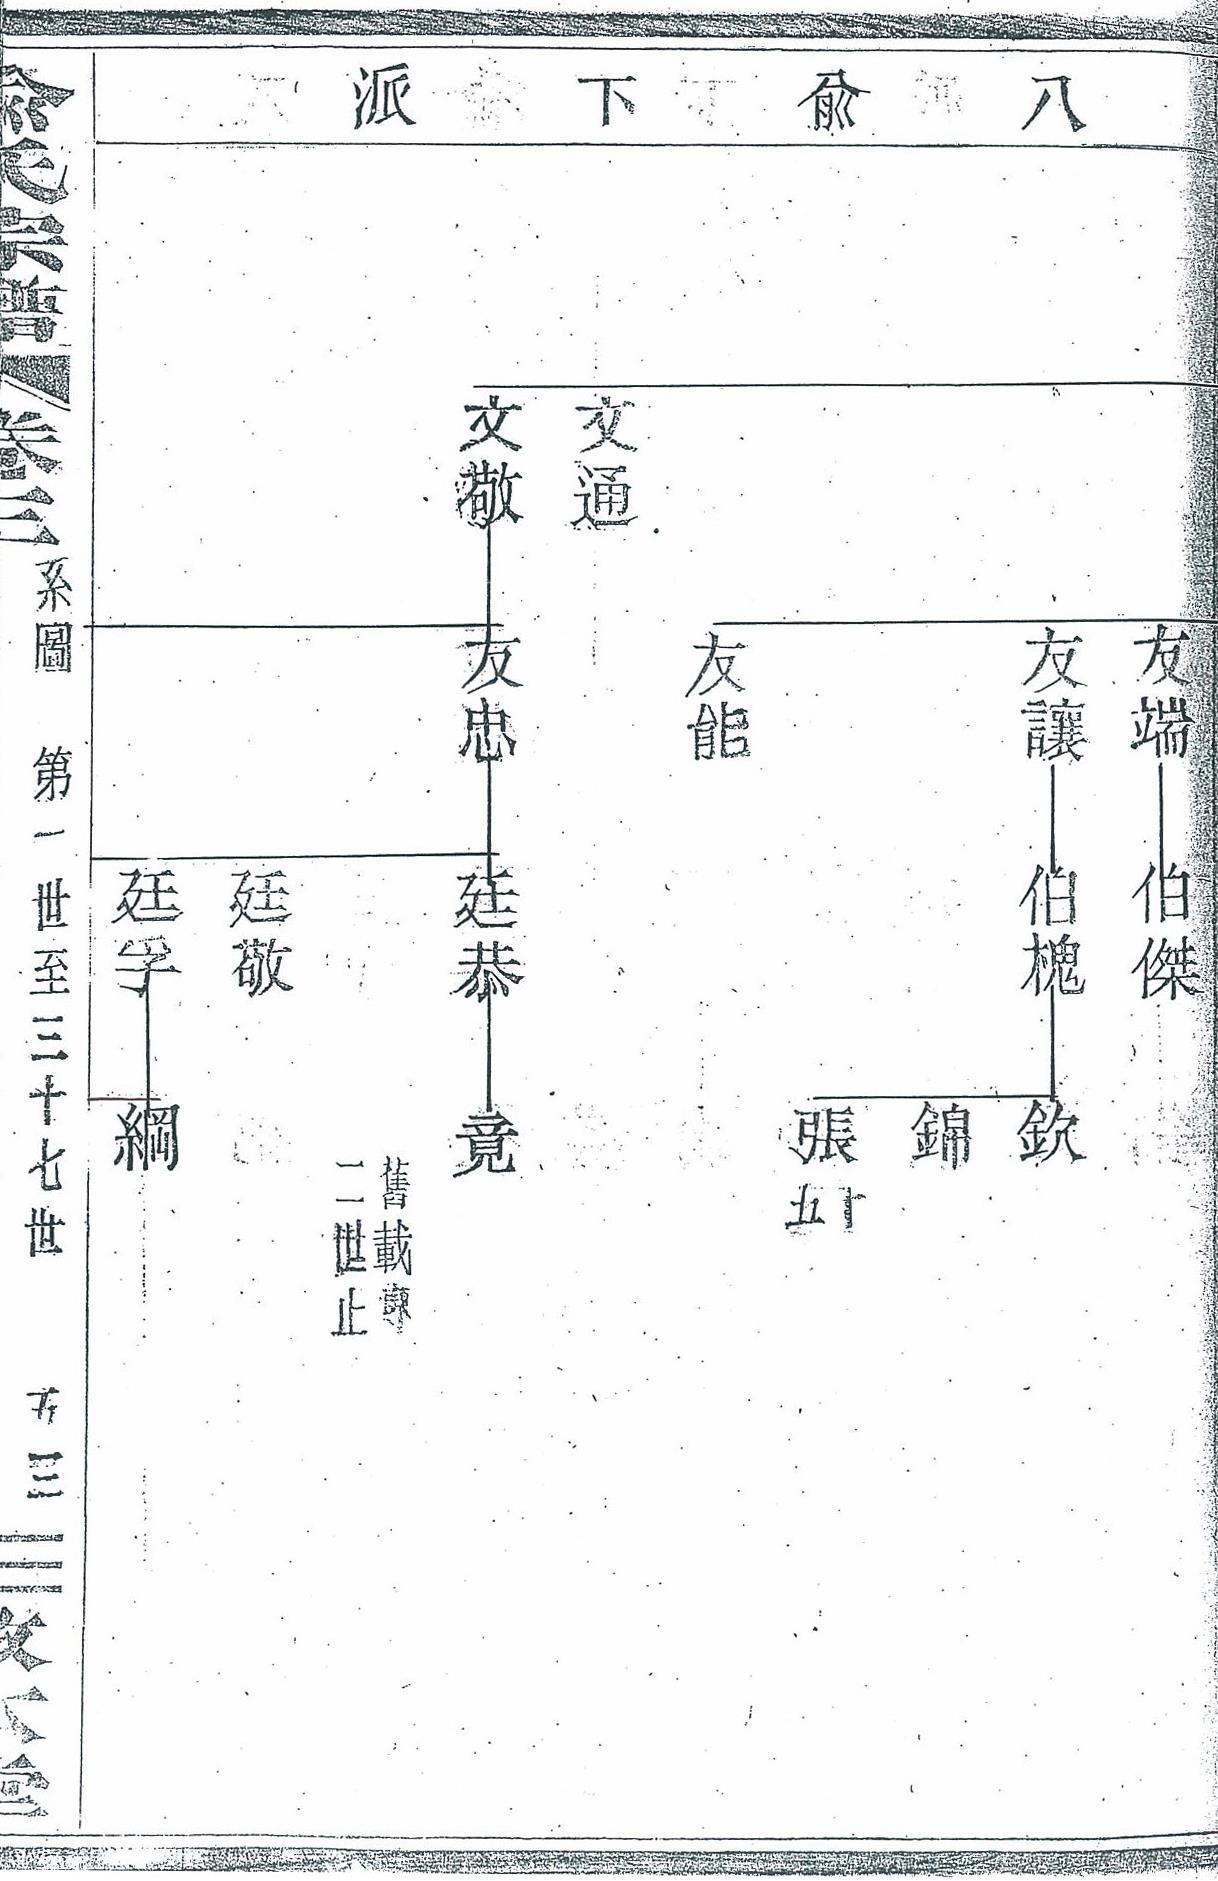 八俞下派
友端
伯傑
友讓
伯槐
欽
錦
張
五十
友能
文通
文敬
友忠
廷恭
竟
舊載
二世止
廷敬
廷孚
綱
俞氏宗譜
卷三
系圖
第一世至三十七世
三